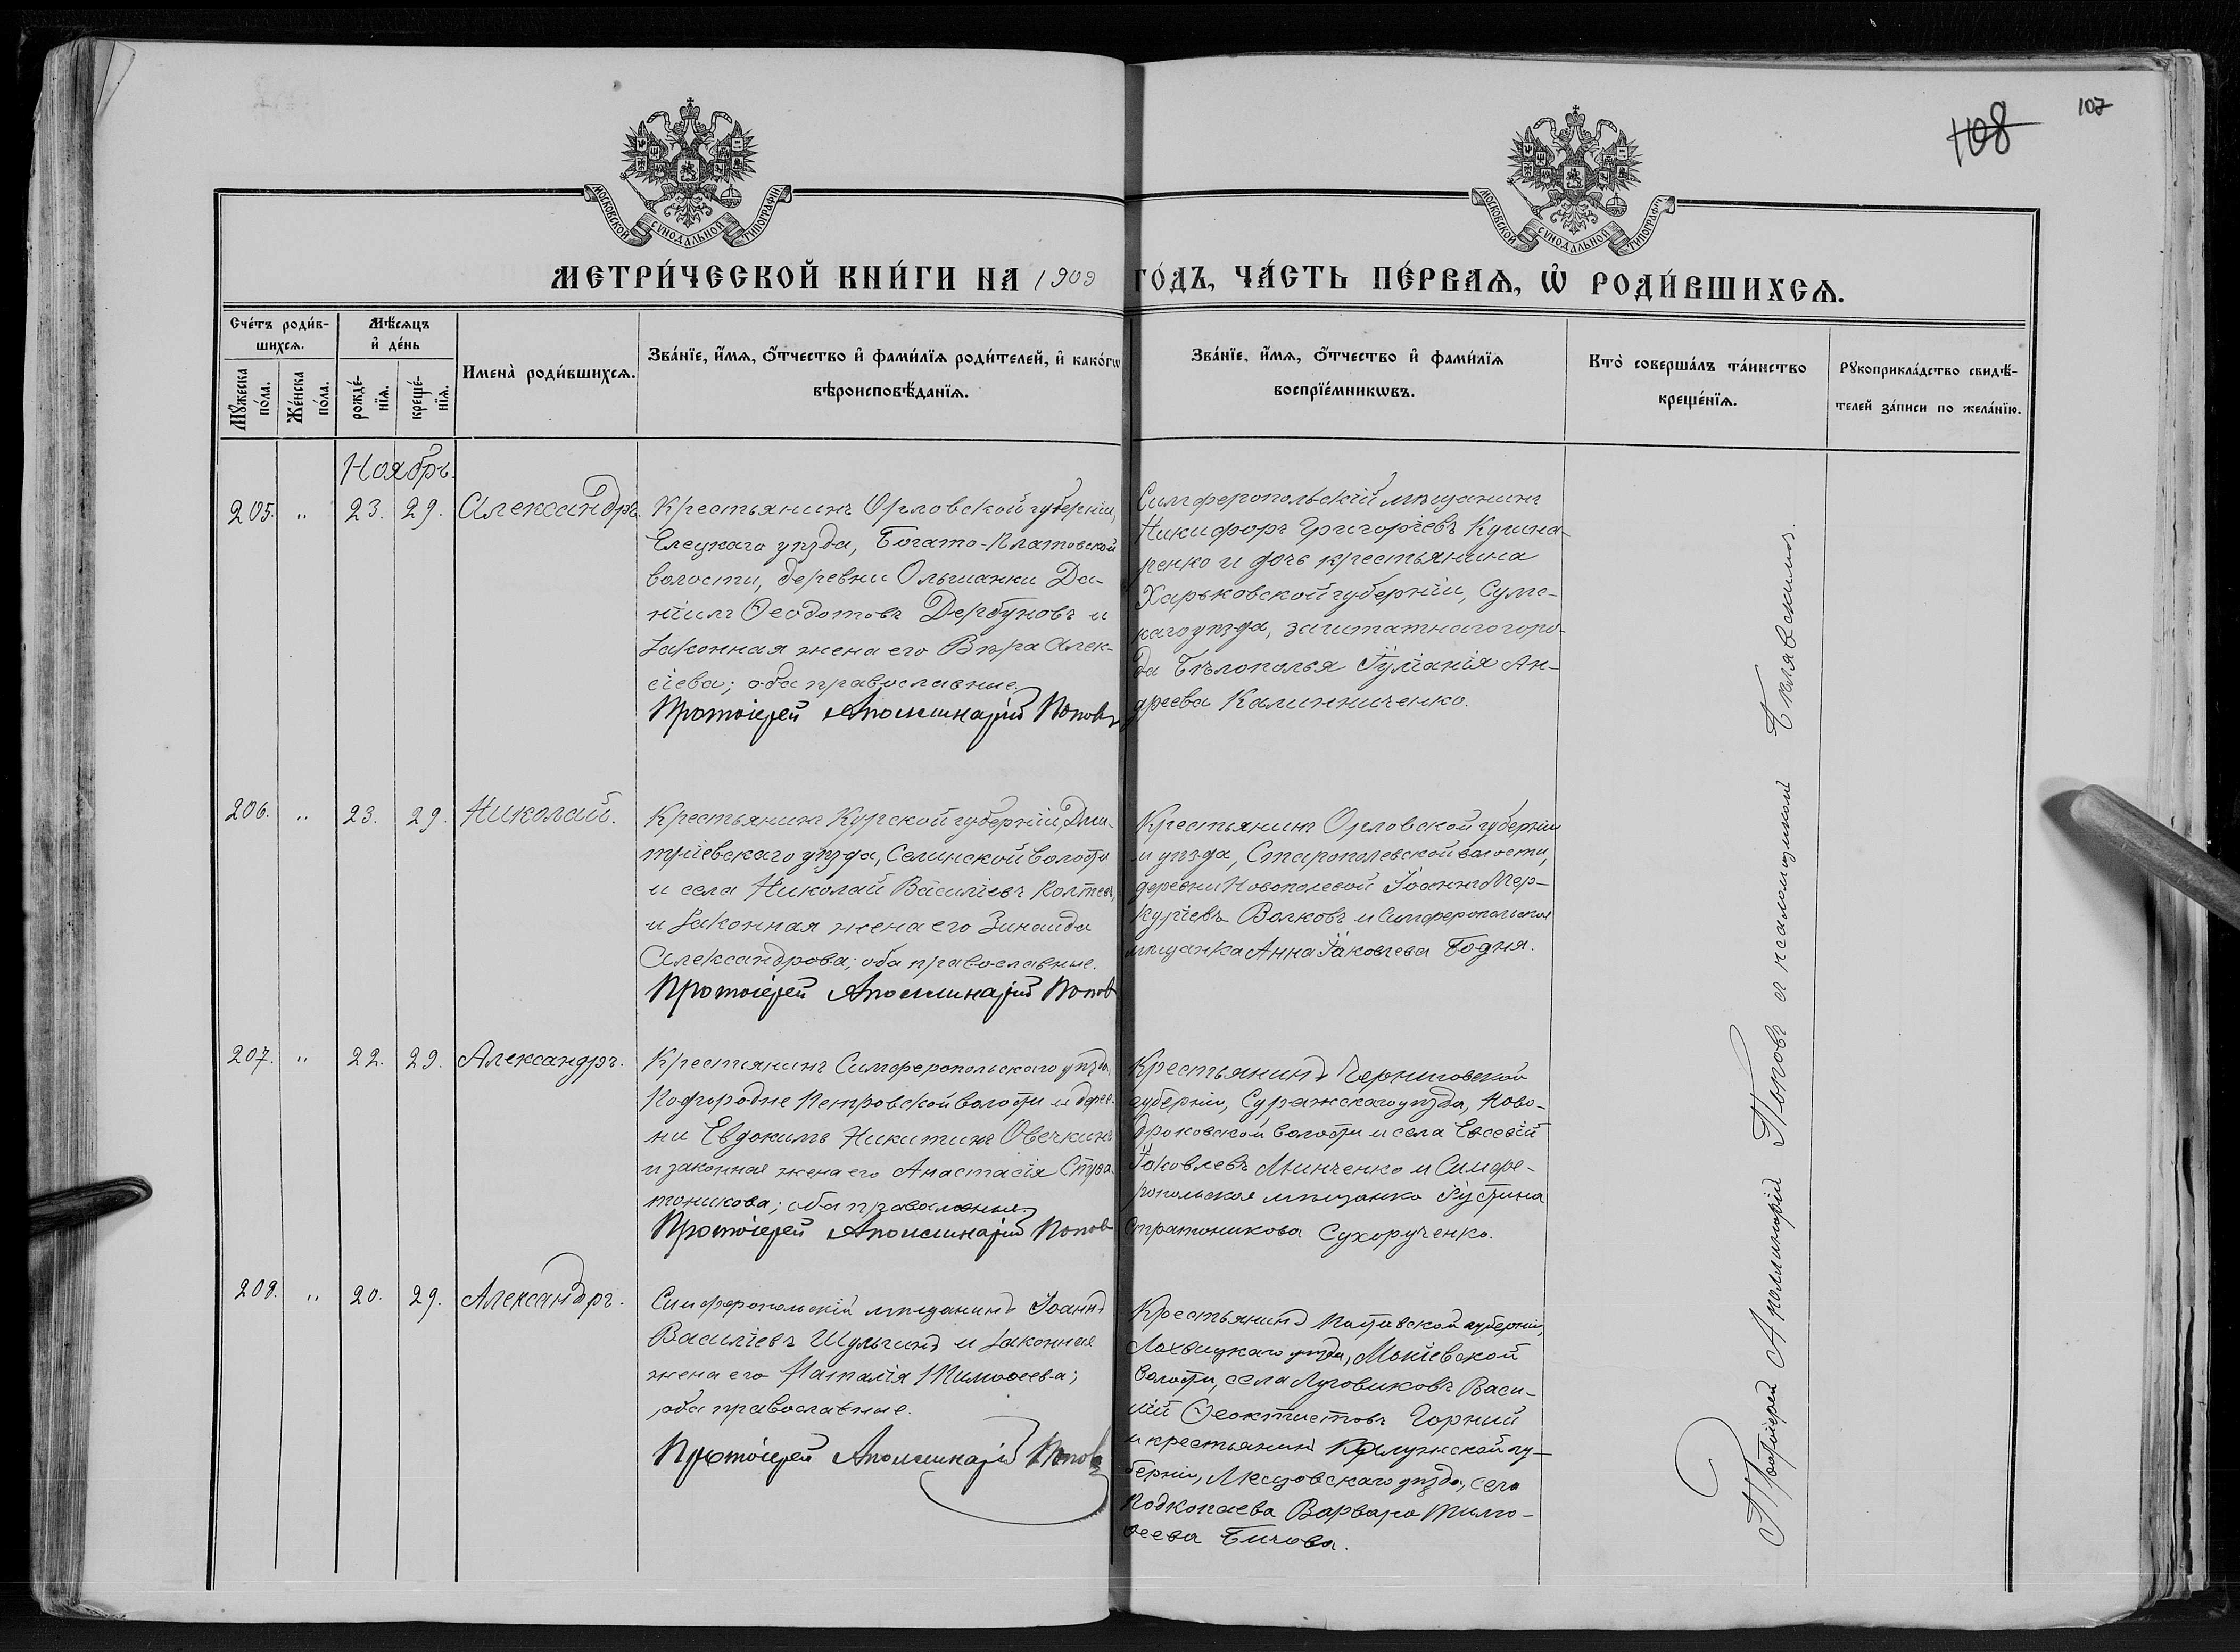 108
107
МОСКОВСКОЙ СѴНОДАЛЬНОЙ ТИПОГРАФІИ
МОСКОВСКОЙ СѴНОДАЛЬНОЙ ТИПОГРАФІИ
МЕТРИ́ЧЕСКОЙ КНИ́ГИ НА 1909 ГО́ДЪ, ЧА́СТЬ ПЕ́РВАѦ, Ѡ҆ РОДИ́ВШИХСѦ.
Сче́тъ роди́в-
шихсѧ.
Мꙋ́жеска
по́ла.
Же́нска
по́ла.
Мѣ́сѧцъ
и҆ де́нь
рожде́-
нїѧ.
креще́-
нїѧ.
Имена̀ роди́вшихсѧ.
Зва́нїе, и҆́мѧ, ѻ҆́тчество и҆ фами́лїѧ роди́телей, и҆ како́гѡ
вѣроисповѣ́данїѧ.
Зва́нїе, и҆́мѧ, ѻ҆́тчество и҆ фами́лїѧ
воспрїе́мникѡвъ.
Кто̀ соверша́лъ та́инство
креще́нїѧ.
Рꙋкоприкла́дство свидѣ́-
телей за́писи по жела́нїю.
Ноябрь.
205. " 23. 29. Александръ.
Крестьянинъ Орловской губерніи,
Елецкаго уѣзда, Богато-Платовской
волости, деревни Ольшанки Да-
ніилъ Ѳеодотовъ Дербуновъ и
законная жена его Вѣра Алек-
сіева; оба православные.
Протоіерей Аполлинарій Поповъ
Симферопольскій мѣщанинъ
Никифоръ Григоріевъ Кушна-
ренко и дочь крестьянина
Харьковской губерніи, Сумс-
каго уѣзда, заштатнаго горо-
да Бѣлополья Іуліанія Ан-
дреева Калинниченко.
206. " 23. 29. Николай.
Крестьянинъ Курской губерніи, Дми-
тріевскаго уѣзда, Селинской волости
и села Николай Василіевъ Колтевъ,
и законная жена его Зинаида
Александрова; оба православные.
Протоіерей Аполлинарій Попов
Крестьянинъ Орловской губерніи
и уѣзда, Старополевской волости,
деревни Новополевой Іоаннъ Мер-
куріевъ Волковъ и Симферопольская
мѣщанка Анна Іаковлева Бодня.
207. " 22. 29. Александръ.
Крестянинъ Симферопольскаго уѣзда,
Подгородне Петровской волости и дерев-
ни Евдокимъ Никитинъ Овечкинъ
и законная жена его Анастасія Стра-
тоникова; оба православные.
Протоіерей Аполлинарій Попов
Крестьянинъ Черниговской
губерніи, Суражскаго уѣзда, Ново-
дроковской волости и села Евсевій
Іаковлевъ Минченко и Симфе-
ропольская мѣщанка Іустина
Стратоникова Сухорученко.
208. " 20. 29. Александръ.
Симферопольскій мѣщанинъ Іоаннъ
Василіевъ Шульгинъ и законная
жена его Наталія Тимоѳеева;
оба православные.
Протоіерей Аполлинарій Попов
Крестьянинъ Полтавской губерніи,
Лохвицкаго уѣзда, Мокіевской
волости, села Луговиковъ Васи-
лій Ѳеоктистовъ Горний
и крестьянинъ Калужской гу-
берніи, Мещовскаго уѣзда, села
Подкопаева Варвара Тимо-
ѳеева Бичова.
Протоіерей Аполлинарій Поповъ и псаломщикъ